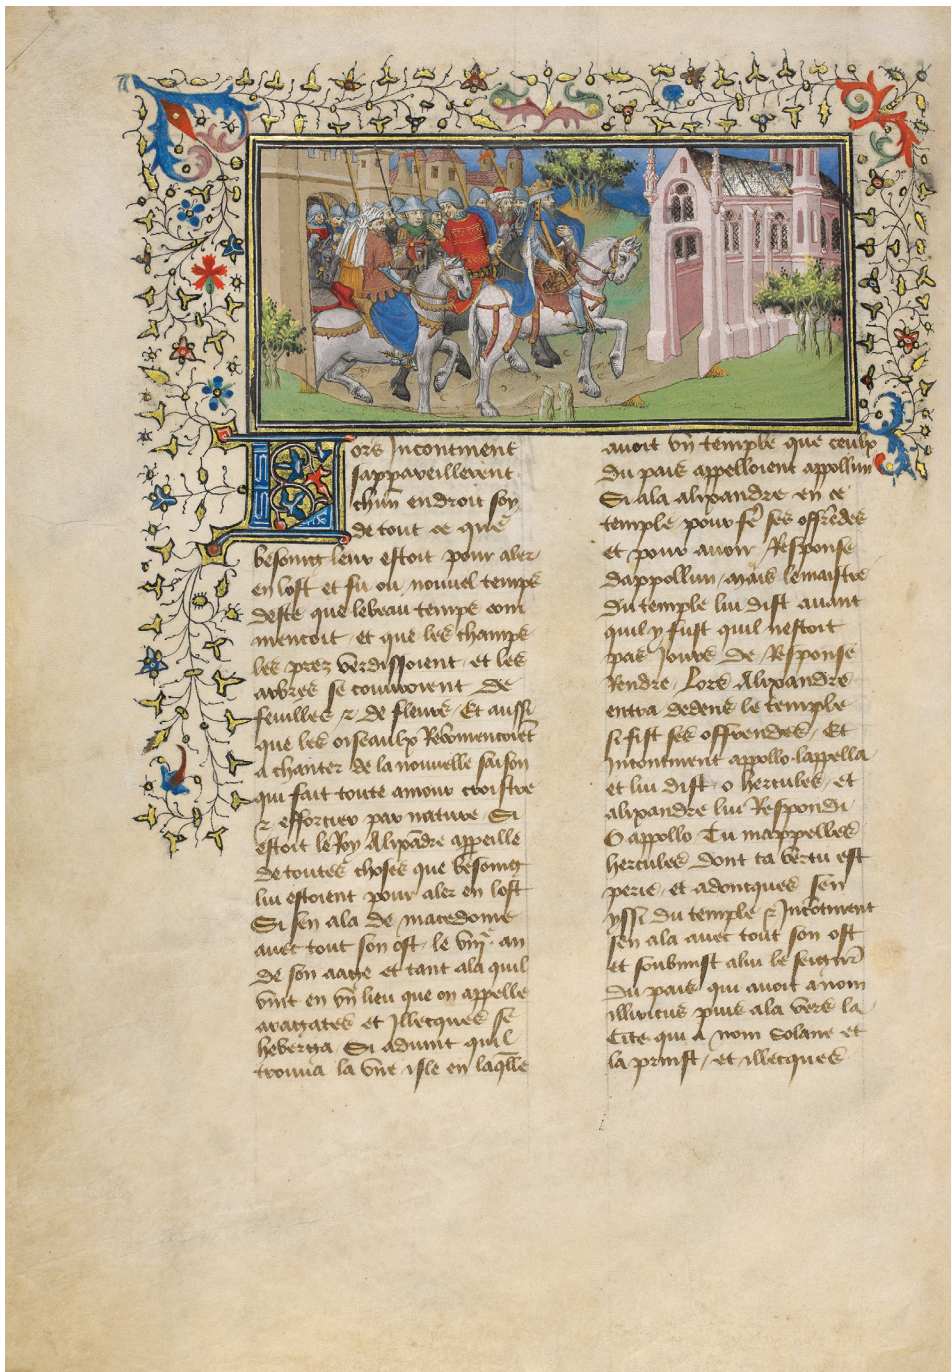 Lors Incontinent
sappareillerent
chūn endroit soy
de tout ce que
besoing leur estoit pour aler
en lost et fu ou nouuel temps
deste que le beau temps com
mencoit et que les champs
les prez verdissoient et les
arbres se couuroient de
feuilles & de fleurs Et aussi
que les oiseaulx Recōmencoiēt
a chanter de la nouuelle saison
qui fait toute amour croistre
& efforcier par nature Si
estoit le Roy Alixādre appeille
de toutes choses que besoing
lui estoient pour aler en lost
Si sen ala de macedoine
auec tout son ost le an
de son aage et tant ala quil
vint en vn lieu que on appelle
aragates et Illecques se
heberga Si aduint quil
trouua la vne isle en laq̄lle
auoit vn temple que ceulx
du pais appelloient appollin
Si ala alixandre en ce
temple pour fē ses offrēdes
et pour auoir Response
dappollin mais le maistre
du temple lui dist auant
quil y fust quil nestoit
pas Iours de Response
Rendre Lors Alixandre
entra dedens le temple
si fist ses offrendes Et
Incontinent appollo lappella
et lui dist o hercules et
alixandre lui Respondi
O appollo Tu mappelles
hercules dont ta vertu est
perie et adoncques sen
yssi du temple & Incōtinent
sen ala auec tout son ost
et soubmist a lui le seigūr
du pais qui auoit a nom
illiricus puis ala vers la
Cite qui a nom Solane et
la prinst et illecques